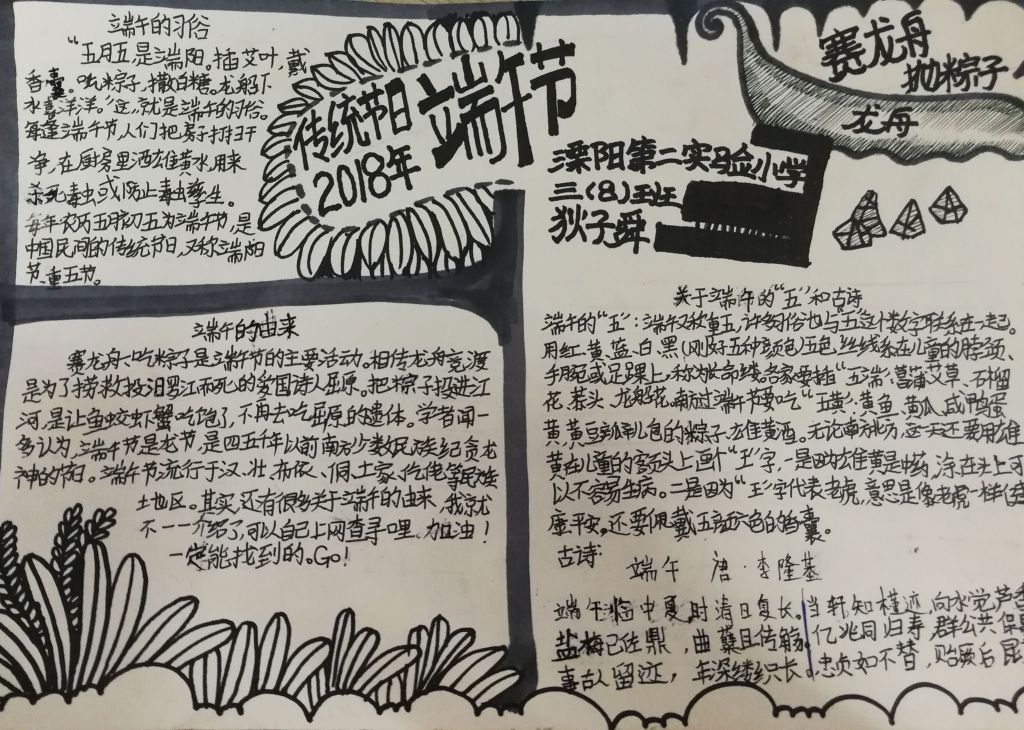 端午的习俗
"五月五是端阳。插艾叶,戴
香囊。吃粽子,撒白糖。龙船下
水喜洋洋。"这,就是端午的习俗。
每逢端午节,人们把房子打扫干
净,在厨房里洒雄黄水,用来
杀死毒虫或防止毒虫孳生。
每年农历五月初五为端午节,是
中国民间的传统节日,又称端阳
节、重五节。
传统节日 端午节
2018年
赛龙舟
抛粽子
龙舟
溧阳第二实验小学
三(8)班
狄子舜
端午的由来
赛龙舟、吃粽子是端午节的主要活动。相传龙舟竞渡
是为了捞救投汨罗江而死的爱国诗人屈原。把粽子投进江
河,是让鱼蛟虾蟹吃饱了,不再去吃屈原的遗体。学者闻一
多认为,端午节是龙节,是四五千年以前南方少数民族纪龙
神的节日。端午节流行于汉、壮、布依、侗、土家、仡佬等民族
土地区。其实,还有很多关于端午的由来,我就
不一一介绍了,可以自己上网查寻哩。加油!
一定能找到的。Go!
关于端午的"五"和古诗
端午的"五":端午又称重五,许多习俗也与五这个数字联系在一起。
用红、黄、蓝、白、黑(刚好五种颜色)五色丝线系在儿童的脖颈、
手腕或足踝上,称为长命缕。各家要插"五端":菖蒲、艾草、石榴
花、蒜头、龙船花,南方过端午节要吃"五黄":黄鱼、黄瓜、咸鸭蛋
黄、黄豆瓣儿包的粽子、雄黄酒。无论南方北方,这一天还要用雄
黄在儿童的额头上画个"王"字,一是因为雄黄是中药,涂在头上可
以不容易生病。二是因为"王"字代表老虎,意思是像老虎一样健
康平安,还要佩戴五颜六色的香囊。
古诗:
端午 唐·李隆基
端午临中夏,时清日复长。当轩知槿近,向水觉芦香
盐梅已佐鼎,曲糵且传觞。亿兆同归寿,群公共保
事古人留迹,年深缕织长。忠贞如不替,贻厥后昆